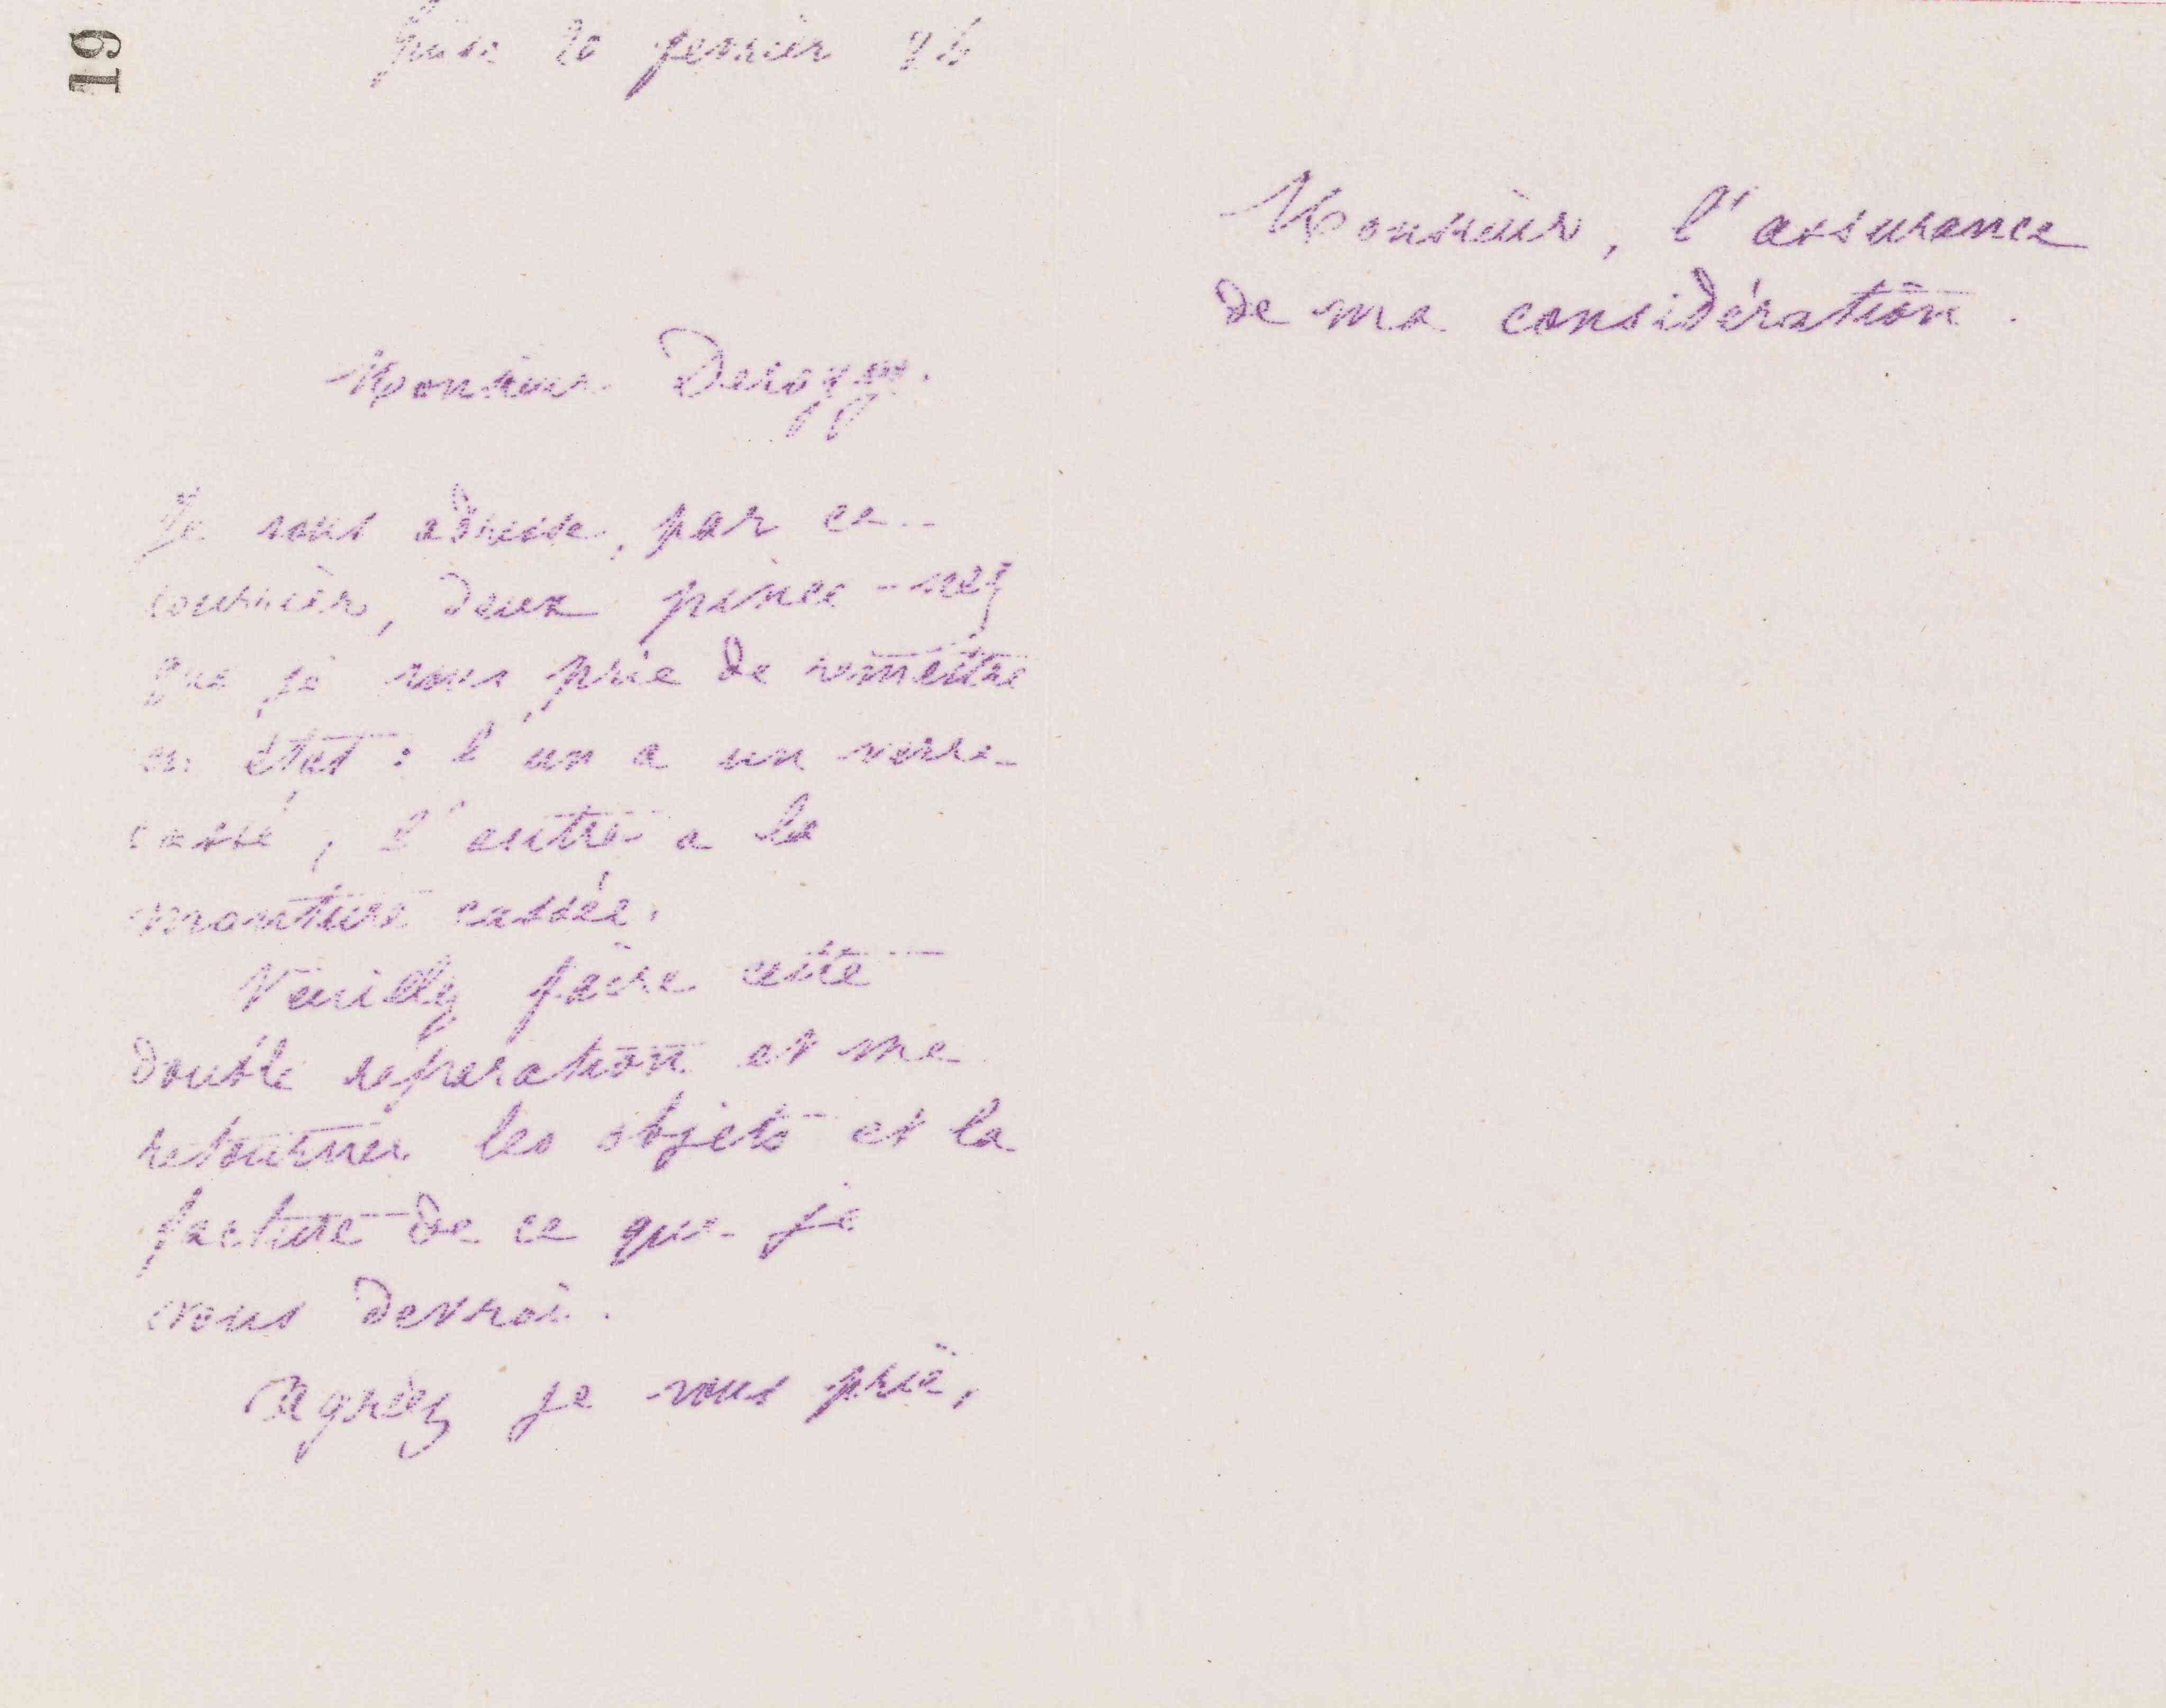 19
Guise 20 février
Monsieur Derogy.
Je vous adresse, par ce
courrier, deux pince-nez
que je vous prie de remettre
en état : l'un a un verre
cassé, l'autre a la
monture cassée.
Veuillez faire cette
double réparation et me
retourner les objets et la
facture de ce que je
vous devrai.
Agréez je vous prie,
Monsieur, l'assurance
de ma considération.